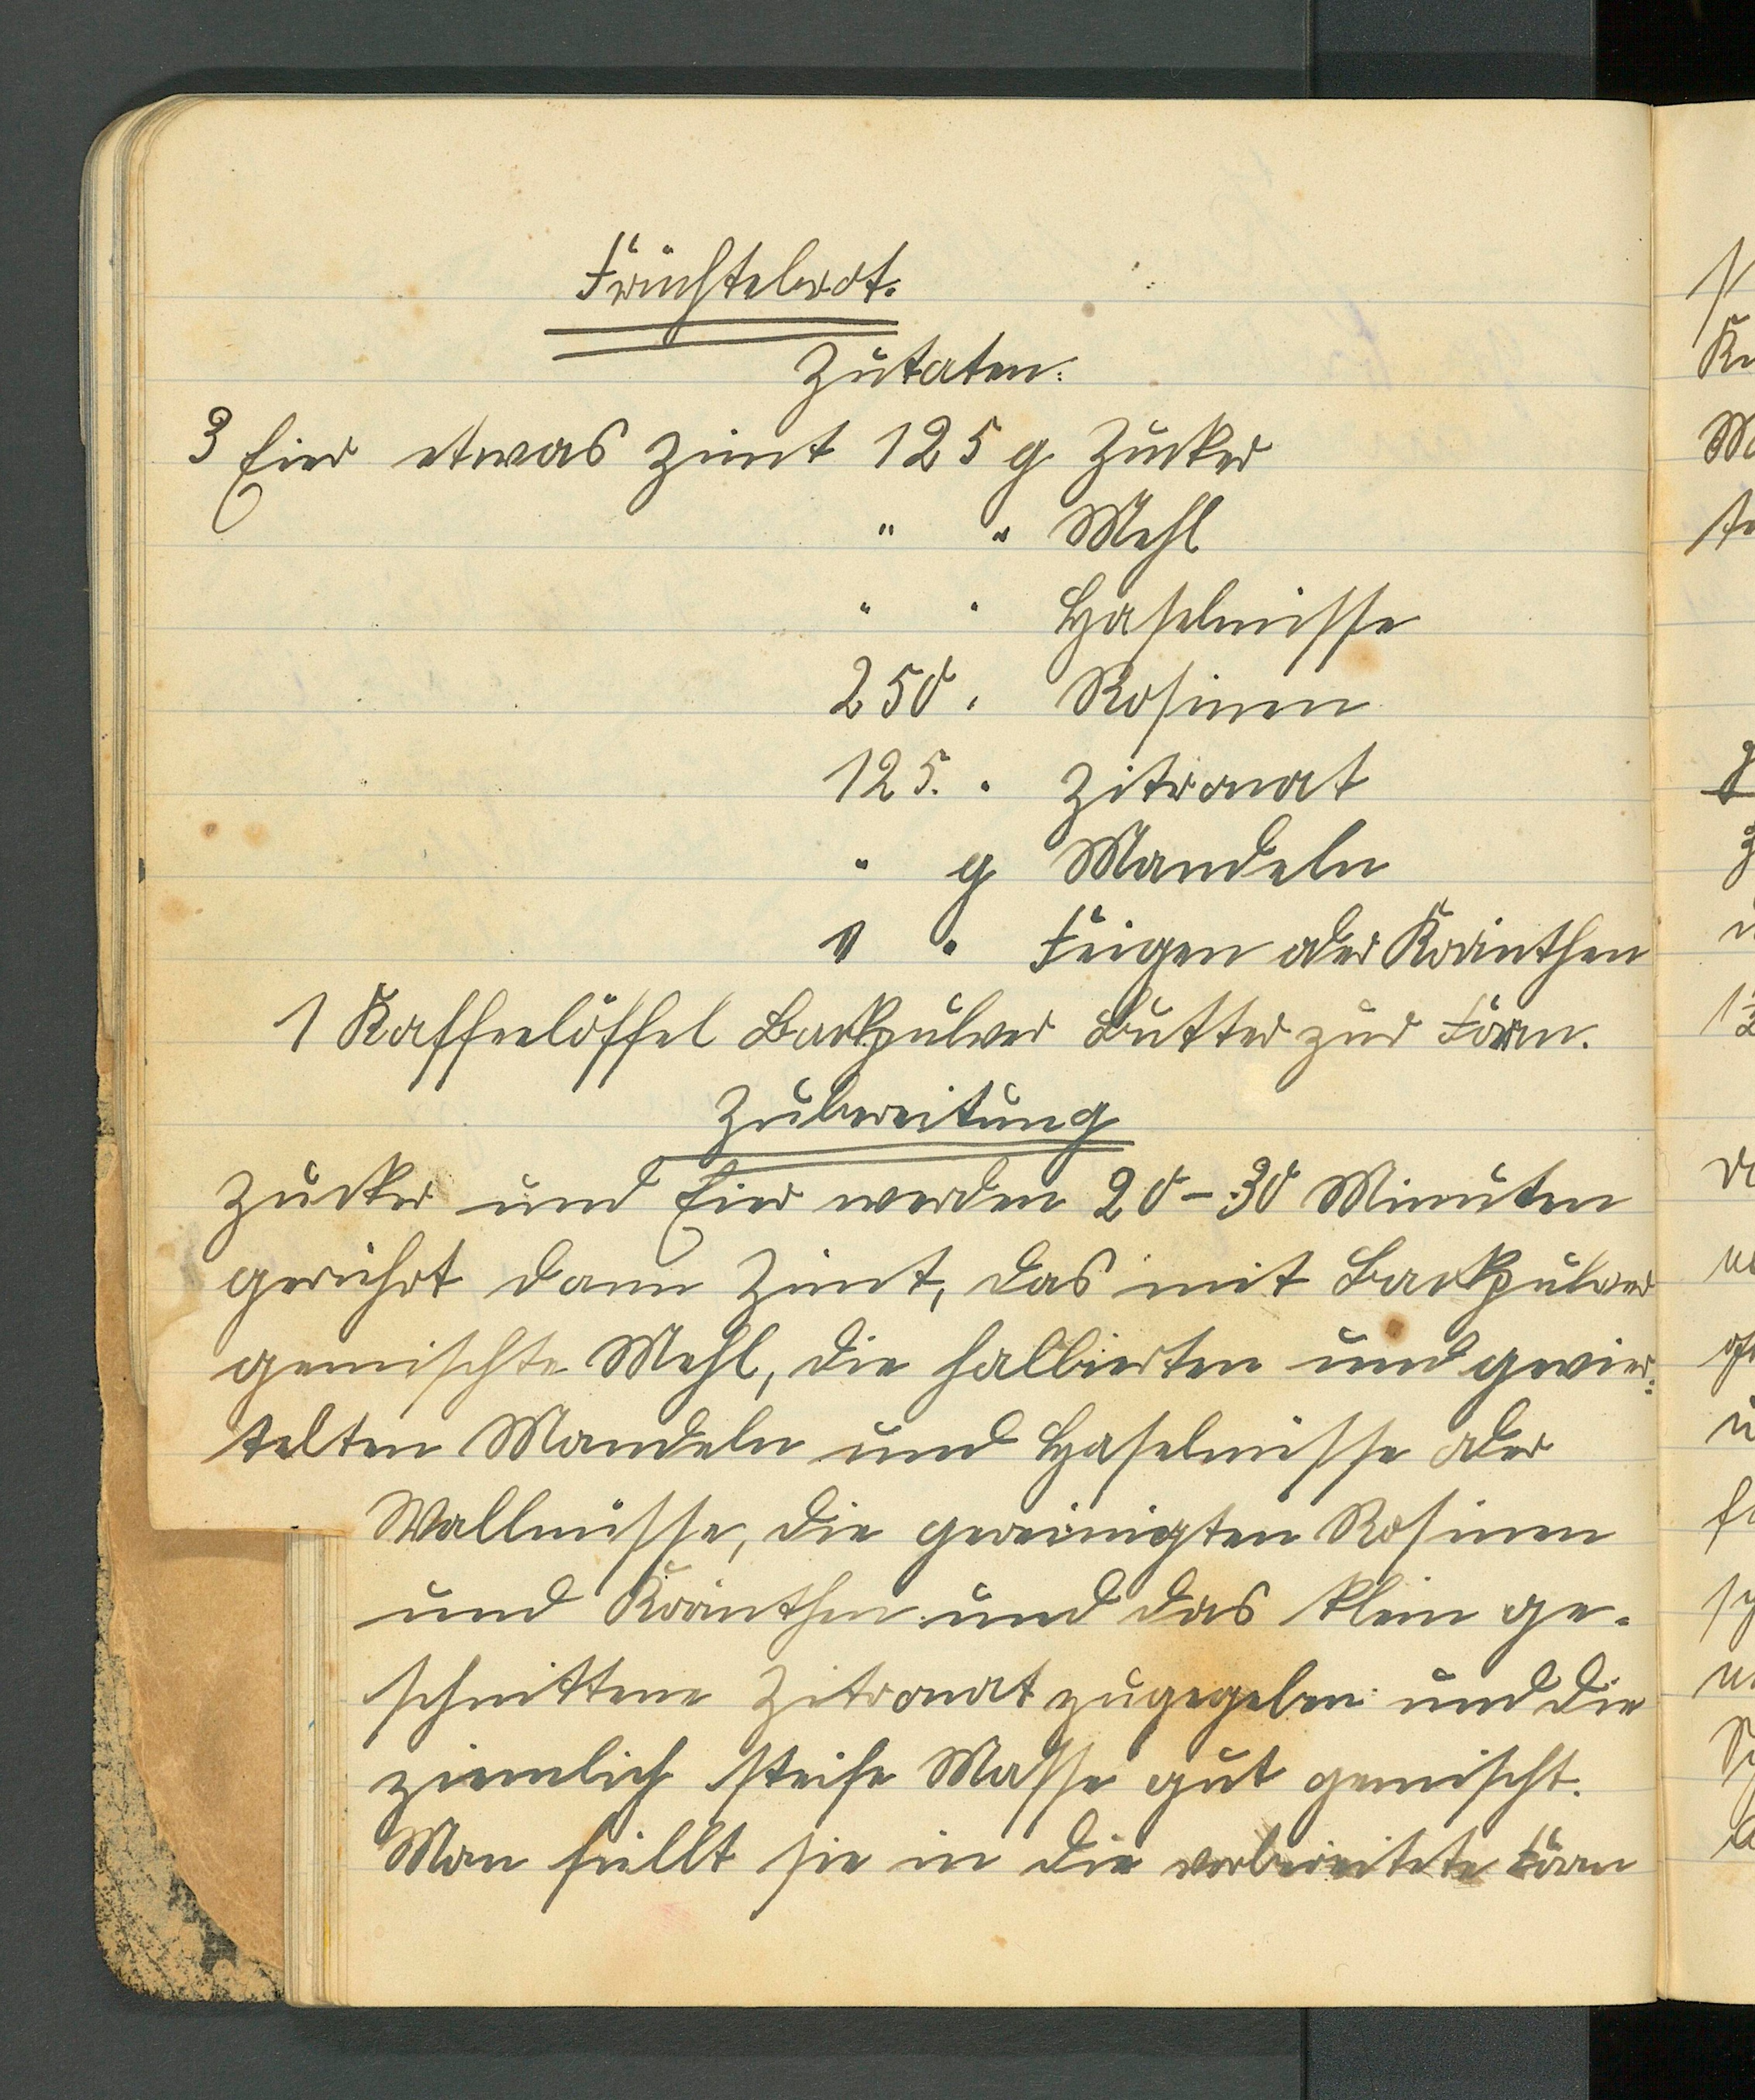 Früchtebrot.
Zutaten:
3 Eier etwas Zimt 125 g Zucker
" " Mehl
" " Haselnüsse
250 " Rosinen
125. " Zitronat
" g Mandeln
" " Feigen oder Korinthen
1 Kaffeelöffel Backpulver Butter zur Form.
Zubereitung
Zucker und Eier werden 20-30 Minuten
gerührt dann Zimt, das mit Backpulver
gemischte Mehl, die halbierten und gevier=
telten Mandeln und Haselnüsse oder
Wallnüsse, die gereinigten Rosinen
und Korinthen und das klein ge-
schnittene Zitronat zugegeben und die
ziemlich steife Masse gut gemischt.
Man füllt sie in die vorbereitete Form